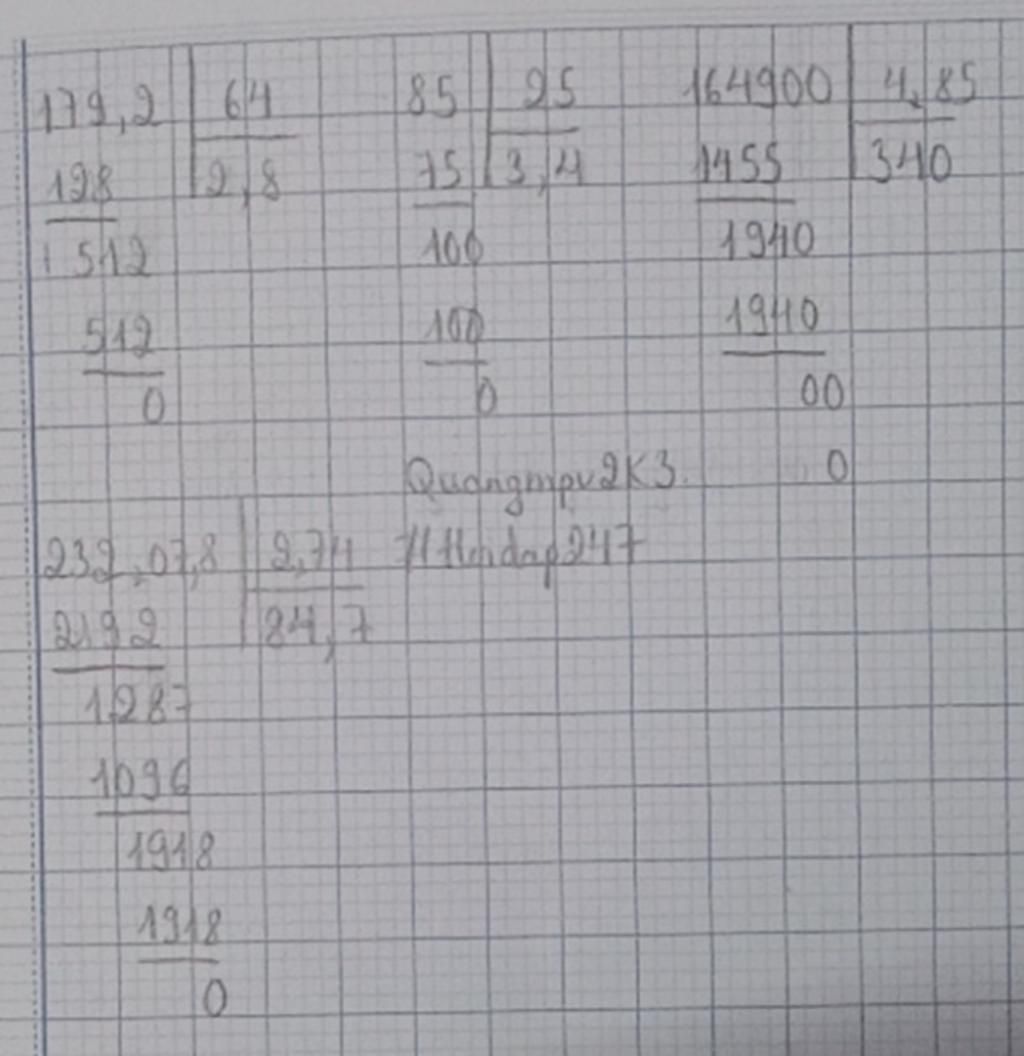 179,2 64
128 2,8
512
512
0
85 25
75 3,4
100
100
0
164900 4,85
1455 340
1940
1940
00
0
Quangmpv2K3.
#Hoidap247
232,07,8 2,74
2192 84,7
1287
1096
1918
1918
0